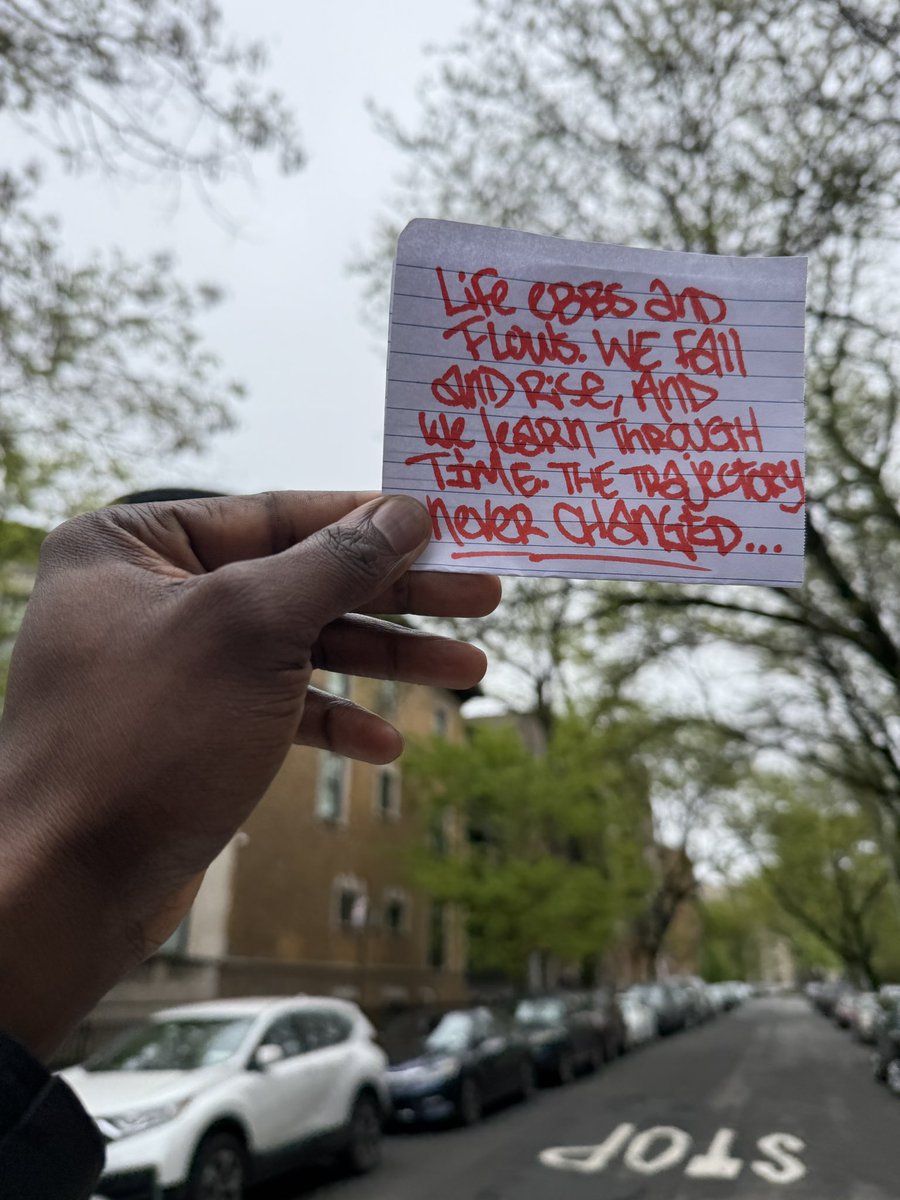 Life eBBs and
Flows. We Fall
and Rise, And
We learn Through
Time. The Trajectory
never Changed...
STOP